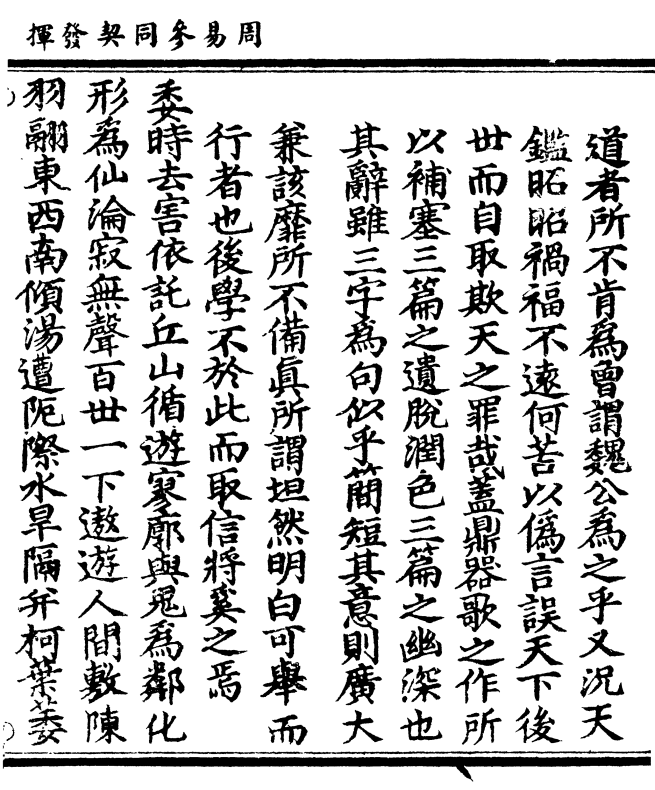 周易參同契發揮
道者所不肯為曾謂魏公為之乎又況天
鑑昭昭禍福不遠何苦以偽言誤天下後
世而自取欺天之罪哉蓋鼎器歌之作所
以補塞三篇之遺脫潤色三篇之幽深也
其辭雖三字為句似乎簡短其意則廣大
兼該靡所不備眞所謂坦然明白可舉而
行者也後學不於此而取信將奚之焉
委時去害依託丘山循遊寥廓與鬼為鄰化
形為仙淪寂無聲百世一下遨遊人間敷陳
羽翮東西南傾湯遭阨際水旱隔并柯葉萎